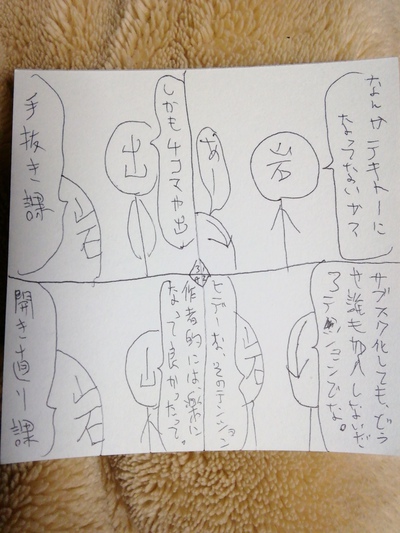 なんかテキトーに
なってない
岩
あー
しかも4コマや出
出
岩
手抜き課
サブスク化しても、どう
せ誰も加入しないだ
ろテンションでな。
岩
ヒデーな、そのテンション
作者的には、楽に
なって良かったって。
山
岩
開き直り課